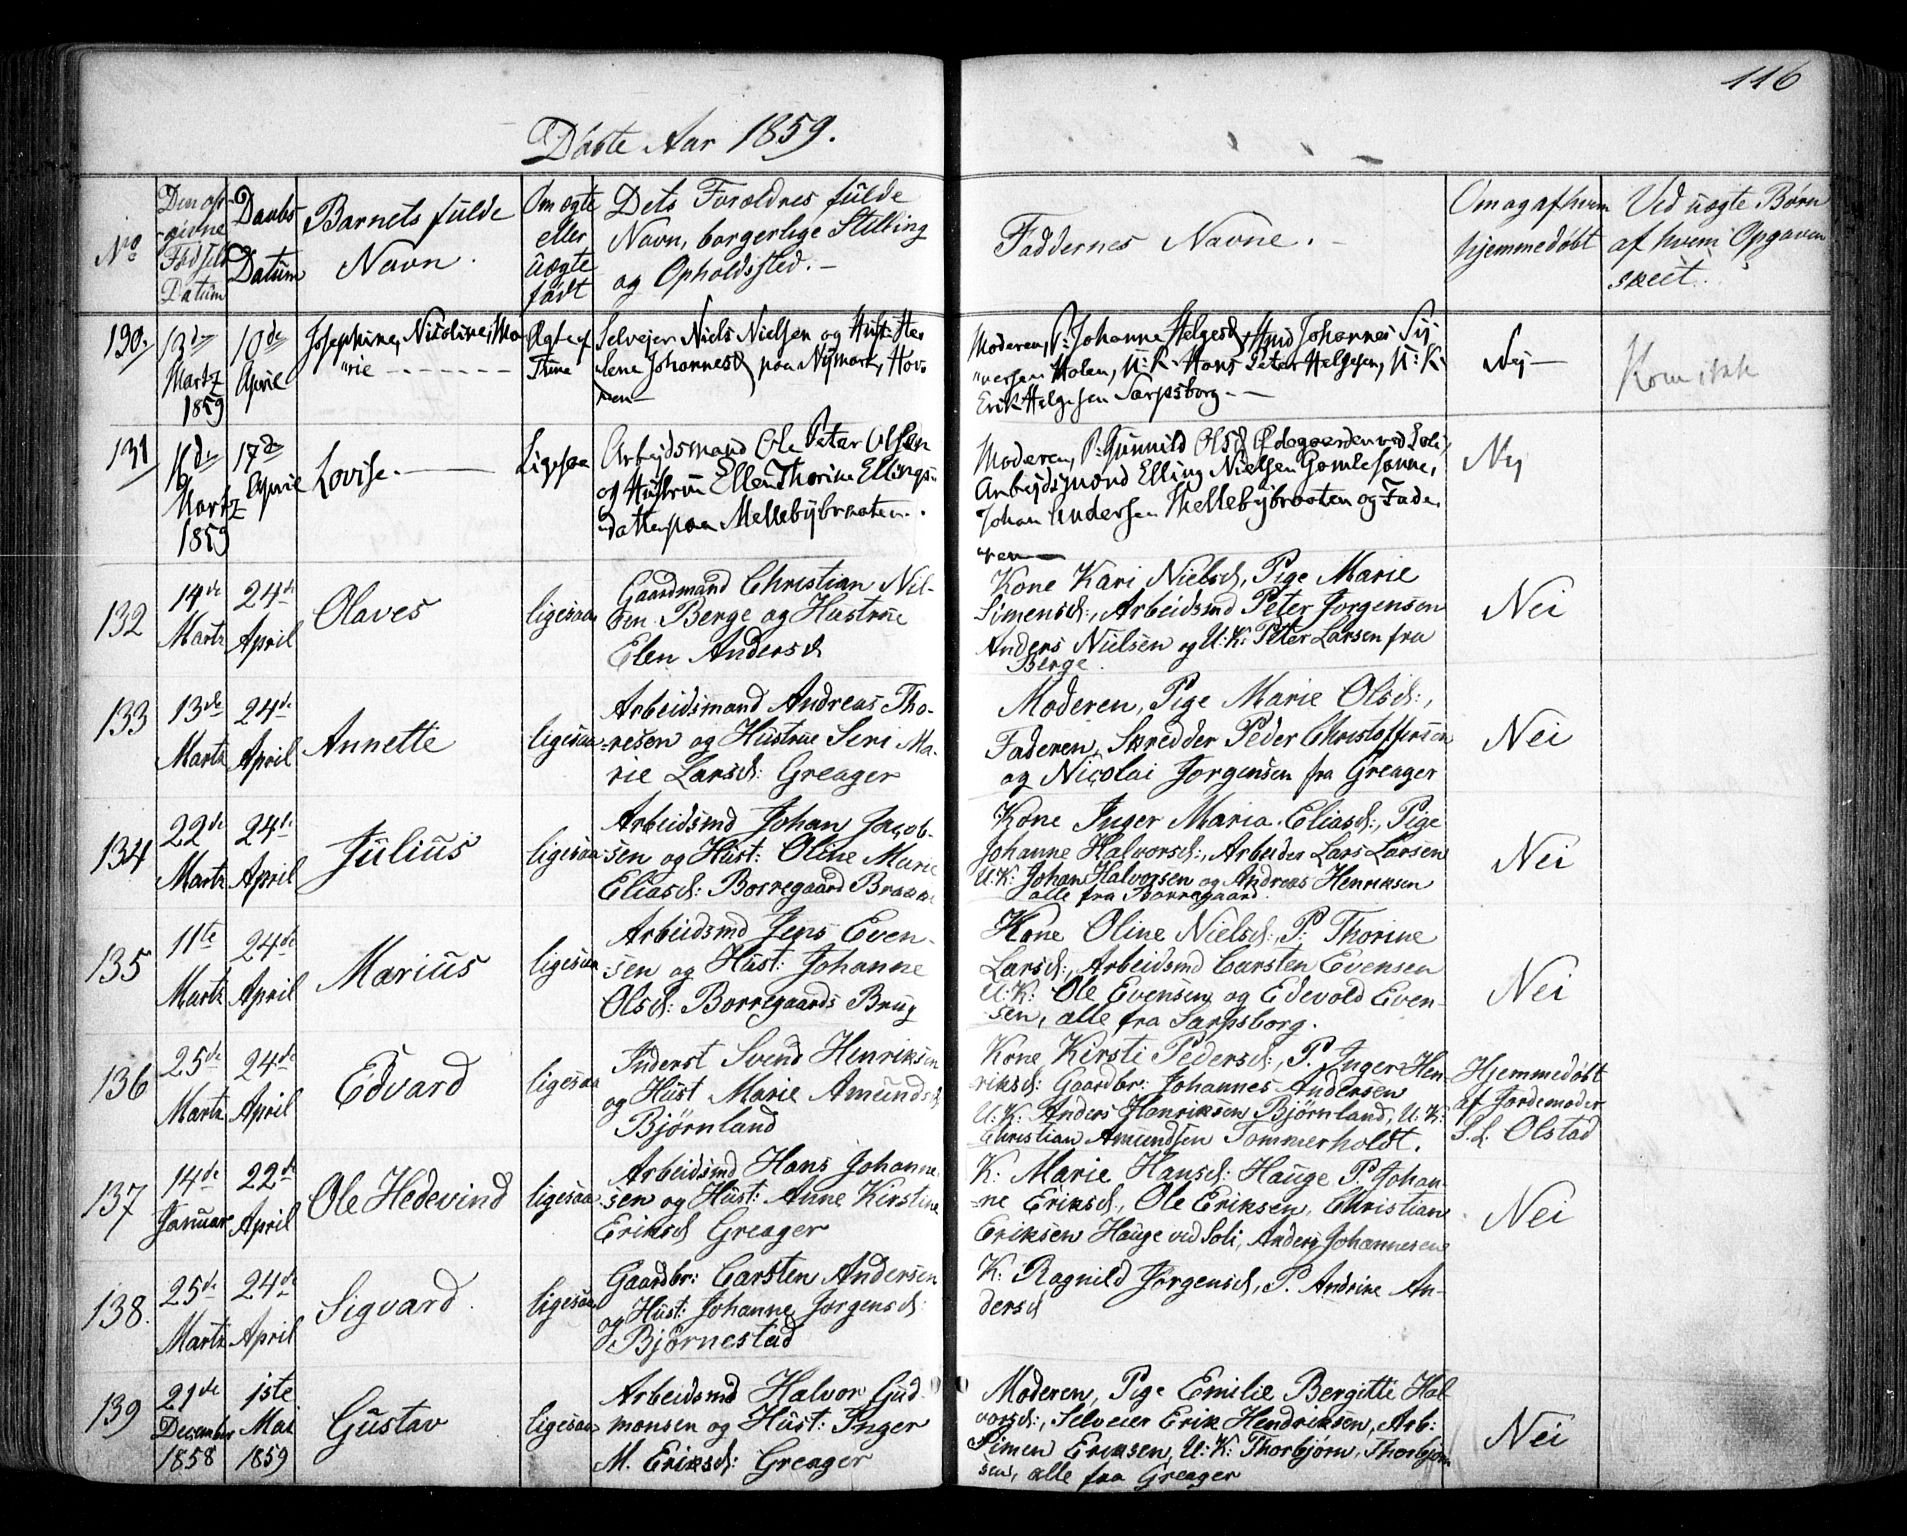 116
Döbte Aar 1859.
No
Den op-
givne
Födsels
Datum
Daabs
Datum
Barnets fulde
Navn.
Om ægte
eller
uægte
födt
Dets Forældres fulde
Navn, borgerlige Stilling
og Opholdssted.-
Faddernes Navne.-
Om og af hvem
hjemmedöbt
Ved uægte Börn
af hvem Opgaven
skeet.
130.
13de
Martz
1859
10de
April
Josephine, Nicoline, Ma-
rie
Ægte af
Selvejer Niels Nielsen og Hust: He-
lene Johannesd paa Nymark, Hov-
Moderen, P: Johanne Helgesd, Johannes
Holen, U: K: Hans Peter Helgesen, U: K:
Erik Helgesen Sarpsborg.-
Nej
131
16de
Martz
1859
17de
April
Lovise.
Ligesaa
Arbejdsmand Ole Peter Olsen
og Hustrue Ellen Thorine Ellings-
datter paa Mellebybraaten.
Moderen, P: Gunnild Olsd Ödegaarden ved Soli,
Arbejdsmand Elling Nielsen
Johan Andersen Mellebybraaten og Fade-
ren
Nej
132
14de
Martz
24de
April
Olaves
ligesaa
Gaardmand Christian Nil-
sen Berge og Hustrue
Elen Andersd
Kone Kari Nielsd, Pige Marie
Simensd:, Arbeidsmd Peter Jorgensen
Anders Nielsen og U: K: Peter Larsen fra
Berge.
Nei
133
13de
Martz
24de
April
Annette
ligesaa
Arbeidsmand Andreas Tho-
resen og Hustrue Seri Ma-
rie Larsd: Greager
Moderen, Pige Marie Olsd:,
Faderen, Skredder Peder Christoffersen
og Nicolai Jorgensen fra Greager
Nei
134
22de
Martz
24de
April
Julius
ligesaa
Arbeidsmd Johan Jacob-
sen og Hust: Oline Marie
Eliasd: Borregaard Braaten
Kone Inger Maria Eliasd:, Pige
Johanne Halvorsd:, Arbeider Lars Larsen
U: K: Johan Halvorsen og Andreas Henriksen
alle fra Borregaard.
Nei
135
11te
Martz
24de
April
Marius
ligesaa
Arbeidsmd Jens Even-
sen og Hust: Johanne
Olsd: Borregaards Brug
Kone Oline Nielsd:, P. Thorine
Larsd:, Arbeidsmd Carsten Evensen
U: K: Ole Evensen og Edevold Even-
sen, alle fra Sarpsborg.
Nei
136
25de
Martz
24de
April
Edvard
ligesaa
Inderst Svend Henriksen
og Hust Marie Amundsd
Björnland
Kone Kirsti Pedersd:, P. Inger Hen-
riksd: Gaardbr: Johannes Andersen
U: K: Anders Henriksen Björnland, U: K:
Christian Amundsen Tommerholdt.
Hjemmedöbt
af Jordemoder
Olstad
137
14de
Januar
22de
April
Ole Hedevind
ligesaa
Arbeidsmd Hans Johanne-
sen og Hust: Anne Kirstine
Eriksd Greager
K: Marie Hansd: Hauge P. Johan-
ne Eriksd:, Ole Eriksen, Christian
Eriksen Hauge ved Soli, Anders Johannesen
Nei
138.
25de
Martz
24de
April
Sigvard.
ligesaa
Gaardbr: Carsten Andersen
og Hust: Johanne Jorgensd:
Björnestad
K: Ragnild Jörgensd, P. Andrine An-
dersd
139
21de
December
1858
1ste
Mai
1859
Gustav
ligesaa
Arbeidsmd Halvor Gud-
monsen og Hust: Inger
M. Eriksd: Greager
Moderen, Pige Emilie Bergitte Hal-
vorsd:, Selveier Erik Hendriksen, Arb:
Simen Eriksen, U: K: Thorbjörn Thorbjorn-
sen, alle fra Greager
Nei